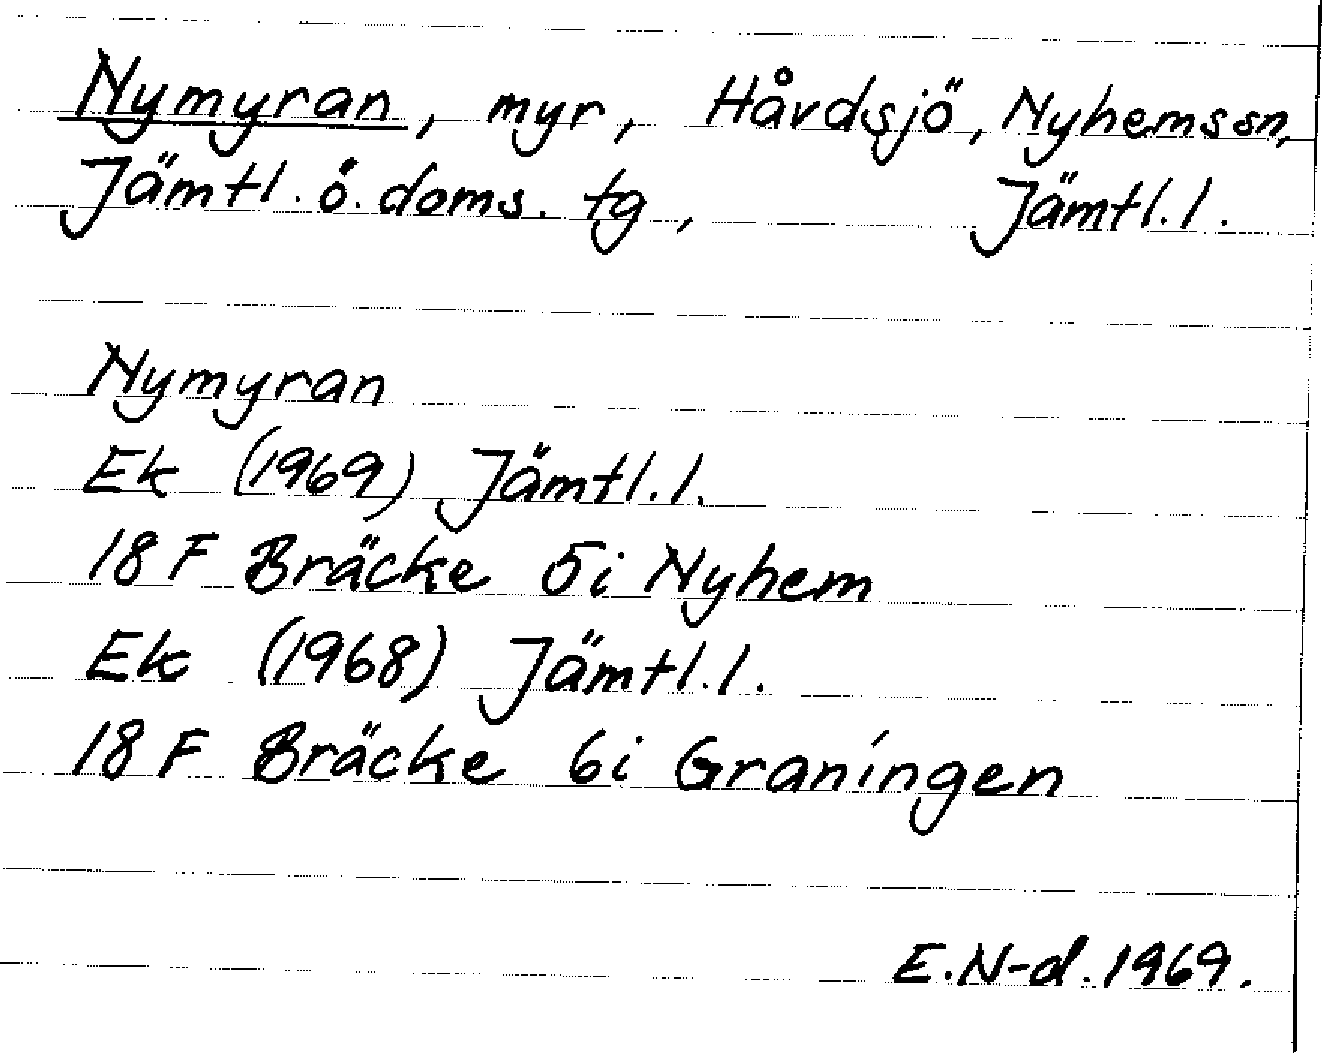 Nymyran, myr, Håvdsjö, Nyhemssn,
Jämtl. ö. doms. tg, Jämtl. l.
Nymyran
Ek (1969) Jämtl. l.
18 F Bräcke 5i Nyhem
Ek (1968) Jämtl. l.
18 F Bräcke 6i Graningen
E.N-d. 1969.